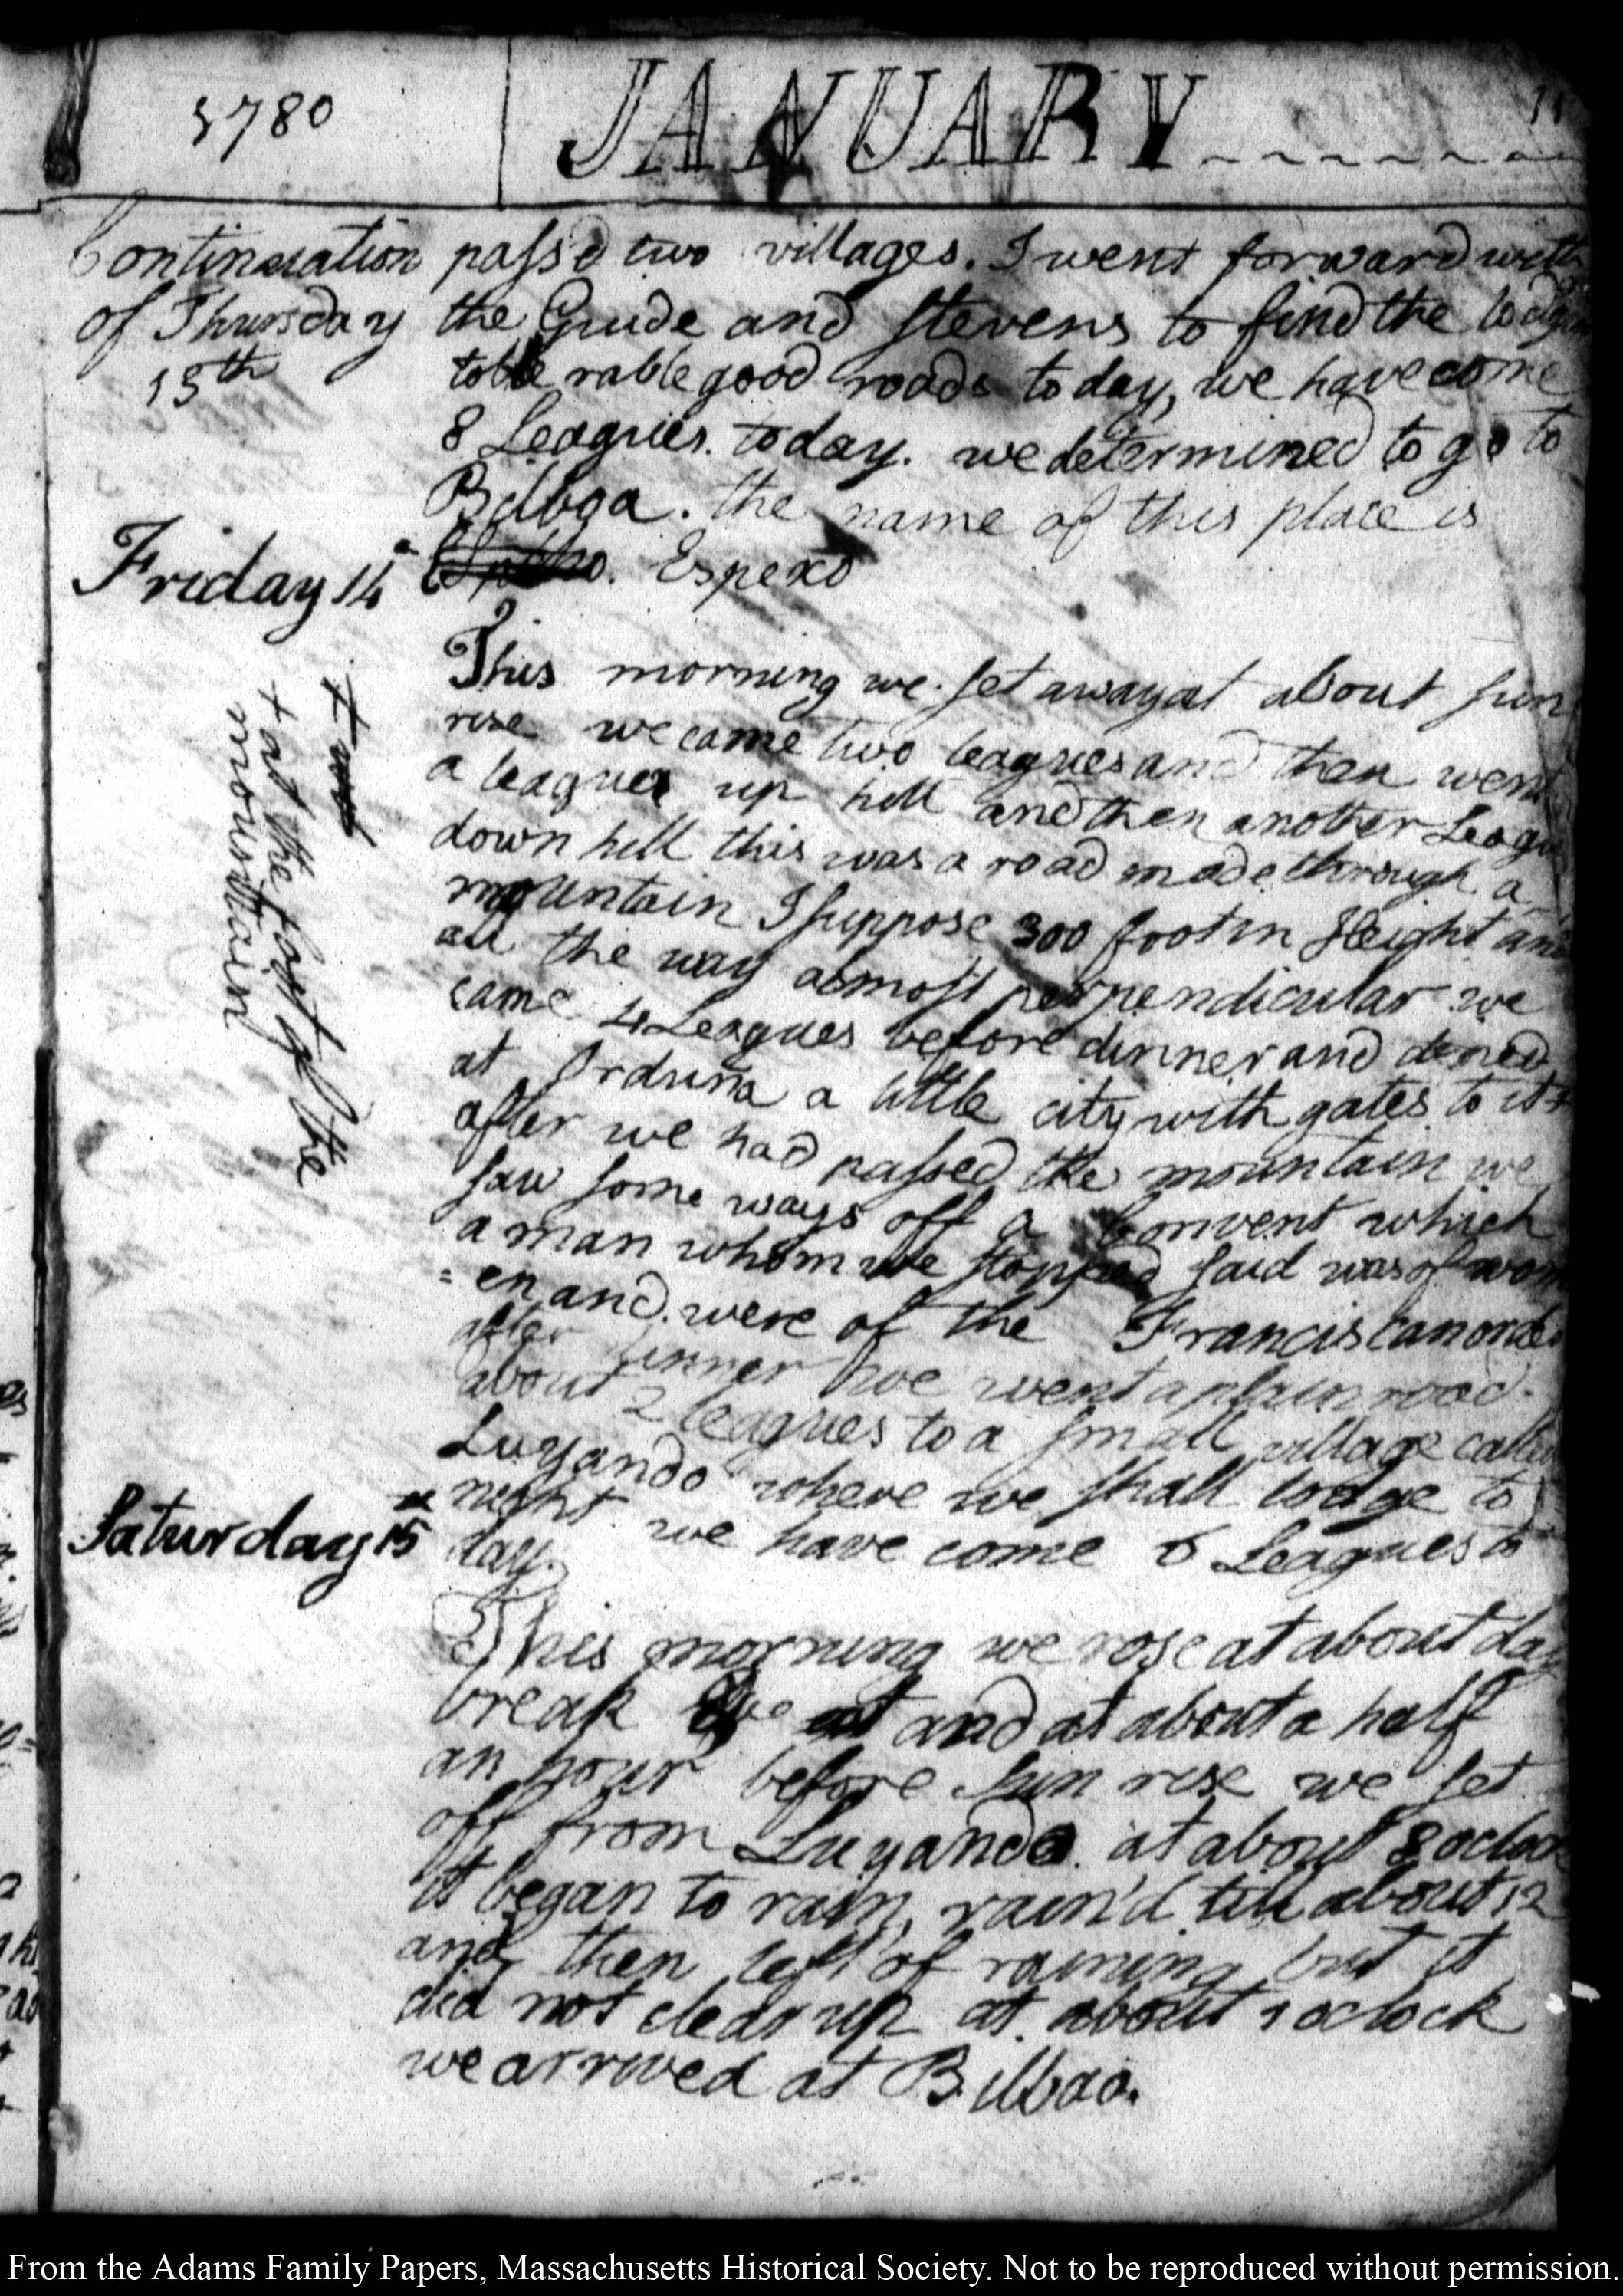 1780
JANUARY
11
Continuation
of Thursday
13th
passd two villages. I went forward with
the Guide and Stevens to find the
tollerable good roads to day, we have come
8 Leagues. today. we determined to go to
Bilboa. the name of this place is
Espexo
Friday 14
+ at the foot of the
mountain
This morning we set away at about sun
rise we came two leagues and then went
a league up hill and then another League
down hill this was a road made through a
mountain I suppose 300 foot in Height and
all the way almost perpendicular we
came 4 Leagues before dinner and dined
at Orduna a little city with gates to it +
after we had passed the mountain we
saw some ways off a Convent which
a man whom we stopped said was of wom
= en and were of the Franciscan order
after dinner we went a plain road
about 2 leagues to a small village called
Luyando where we shall lodge to
night we have come 6 Leagues to
day.
Saturday 15
This morning we rose at about day
break and at about a half
an hour before sun rise we set
off from Luyando. at about 8 oclock
it began to rain, rain'd till about 12
and then left of raining but it
did not clear up at about 1 oclock
we arrived at Bilbao.
From the Adams Family Papers, Massachusetts Historical Society. Not to be reproduced without permission.